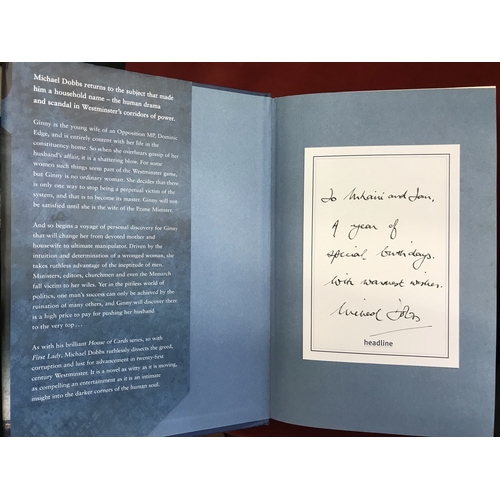 Michael Dobbs returns to the subject that made
him a household name – the human drama
and scandal in Westminster's corridors of power.
Ginny is the young wife of an Opposition MP, Dominic
Edge, and is entirely content with her life in the
constituency home. So when she overhears gossip of her
husband's affair, it is a shattering blow. For some
women such things seem part of the Westminster game,
but Ginny is no ordinary woman. She decides that there
is only one way to stop being a perpetual victim of the
system, and that is to become its master. Ginny will not
be satisfied until she is the wife of the Prime Minister.
And so begins a voyage of personal discovery for Ginny
that will change her from devoted mother and
housewife to ultimate manipulator. Driven by the
intuition and determination of a wronged woman, she
takes ruthless advantage of the ineptitude of men.
Ministers, editors, churchmen and even the Monarch
fall victim to her wiles. Yet in the pitiless world of
politics, one man's success can only be achieved by the
ruination of many others, and Ginny will discover there
is a high price to pay for pushing her husband
to the very top . . .
As with his brilliant House of Cards series, so with
First Lady, Michael Dobbs ruthlessly dissects the greed,
corruption and lust for advancement in twenty-first
century Westminster. It is a novel as witty as it is moving,
as compelling an entertainment as it is an intimate
insight into the darker corners of the human soul.
To and Ian,
A year of
special birthdays.
With warmest wishes.
Michael Dobbs
headline